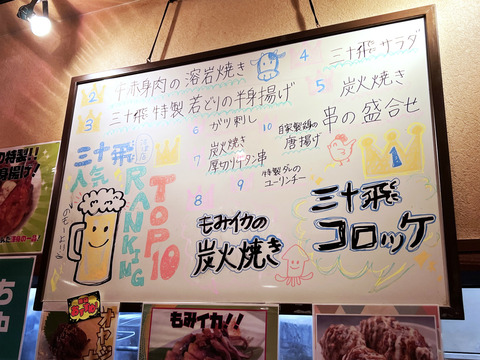 2 牛赤身肉の溶岩焼き
3 三十飛特製若どりの半身揚げ
4 三十飛サラダ
5 炭火焼き
串の盛合せ
6 ガツ刺し
7 炭火焼き
厚切り牛タン串
8
もみイカの
炭火焼き
9 特製ダレの
ユーリンチー
10 自家製鶏の
唐揚げ
1
三十飛
コロッケ
三十飛
人気
RANKING
TOP10
の特製!!
身揚げ!
もみイカ!!